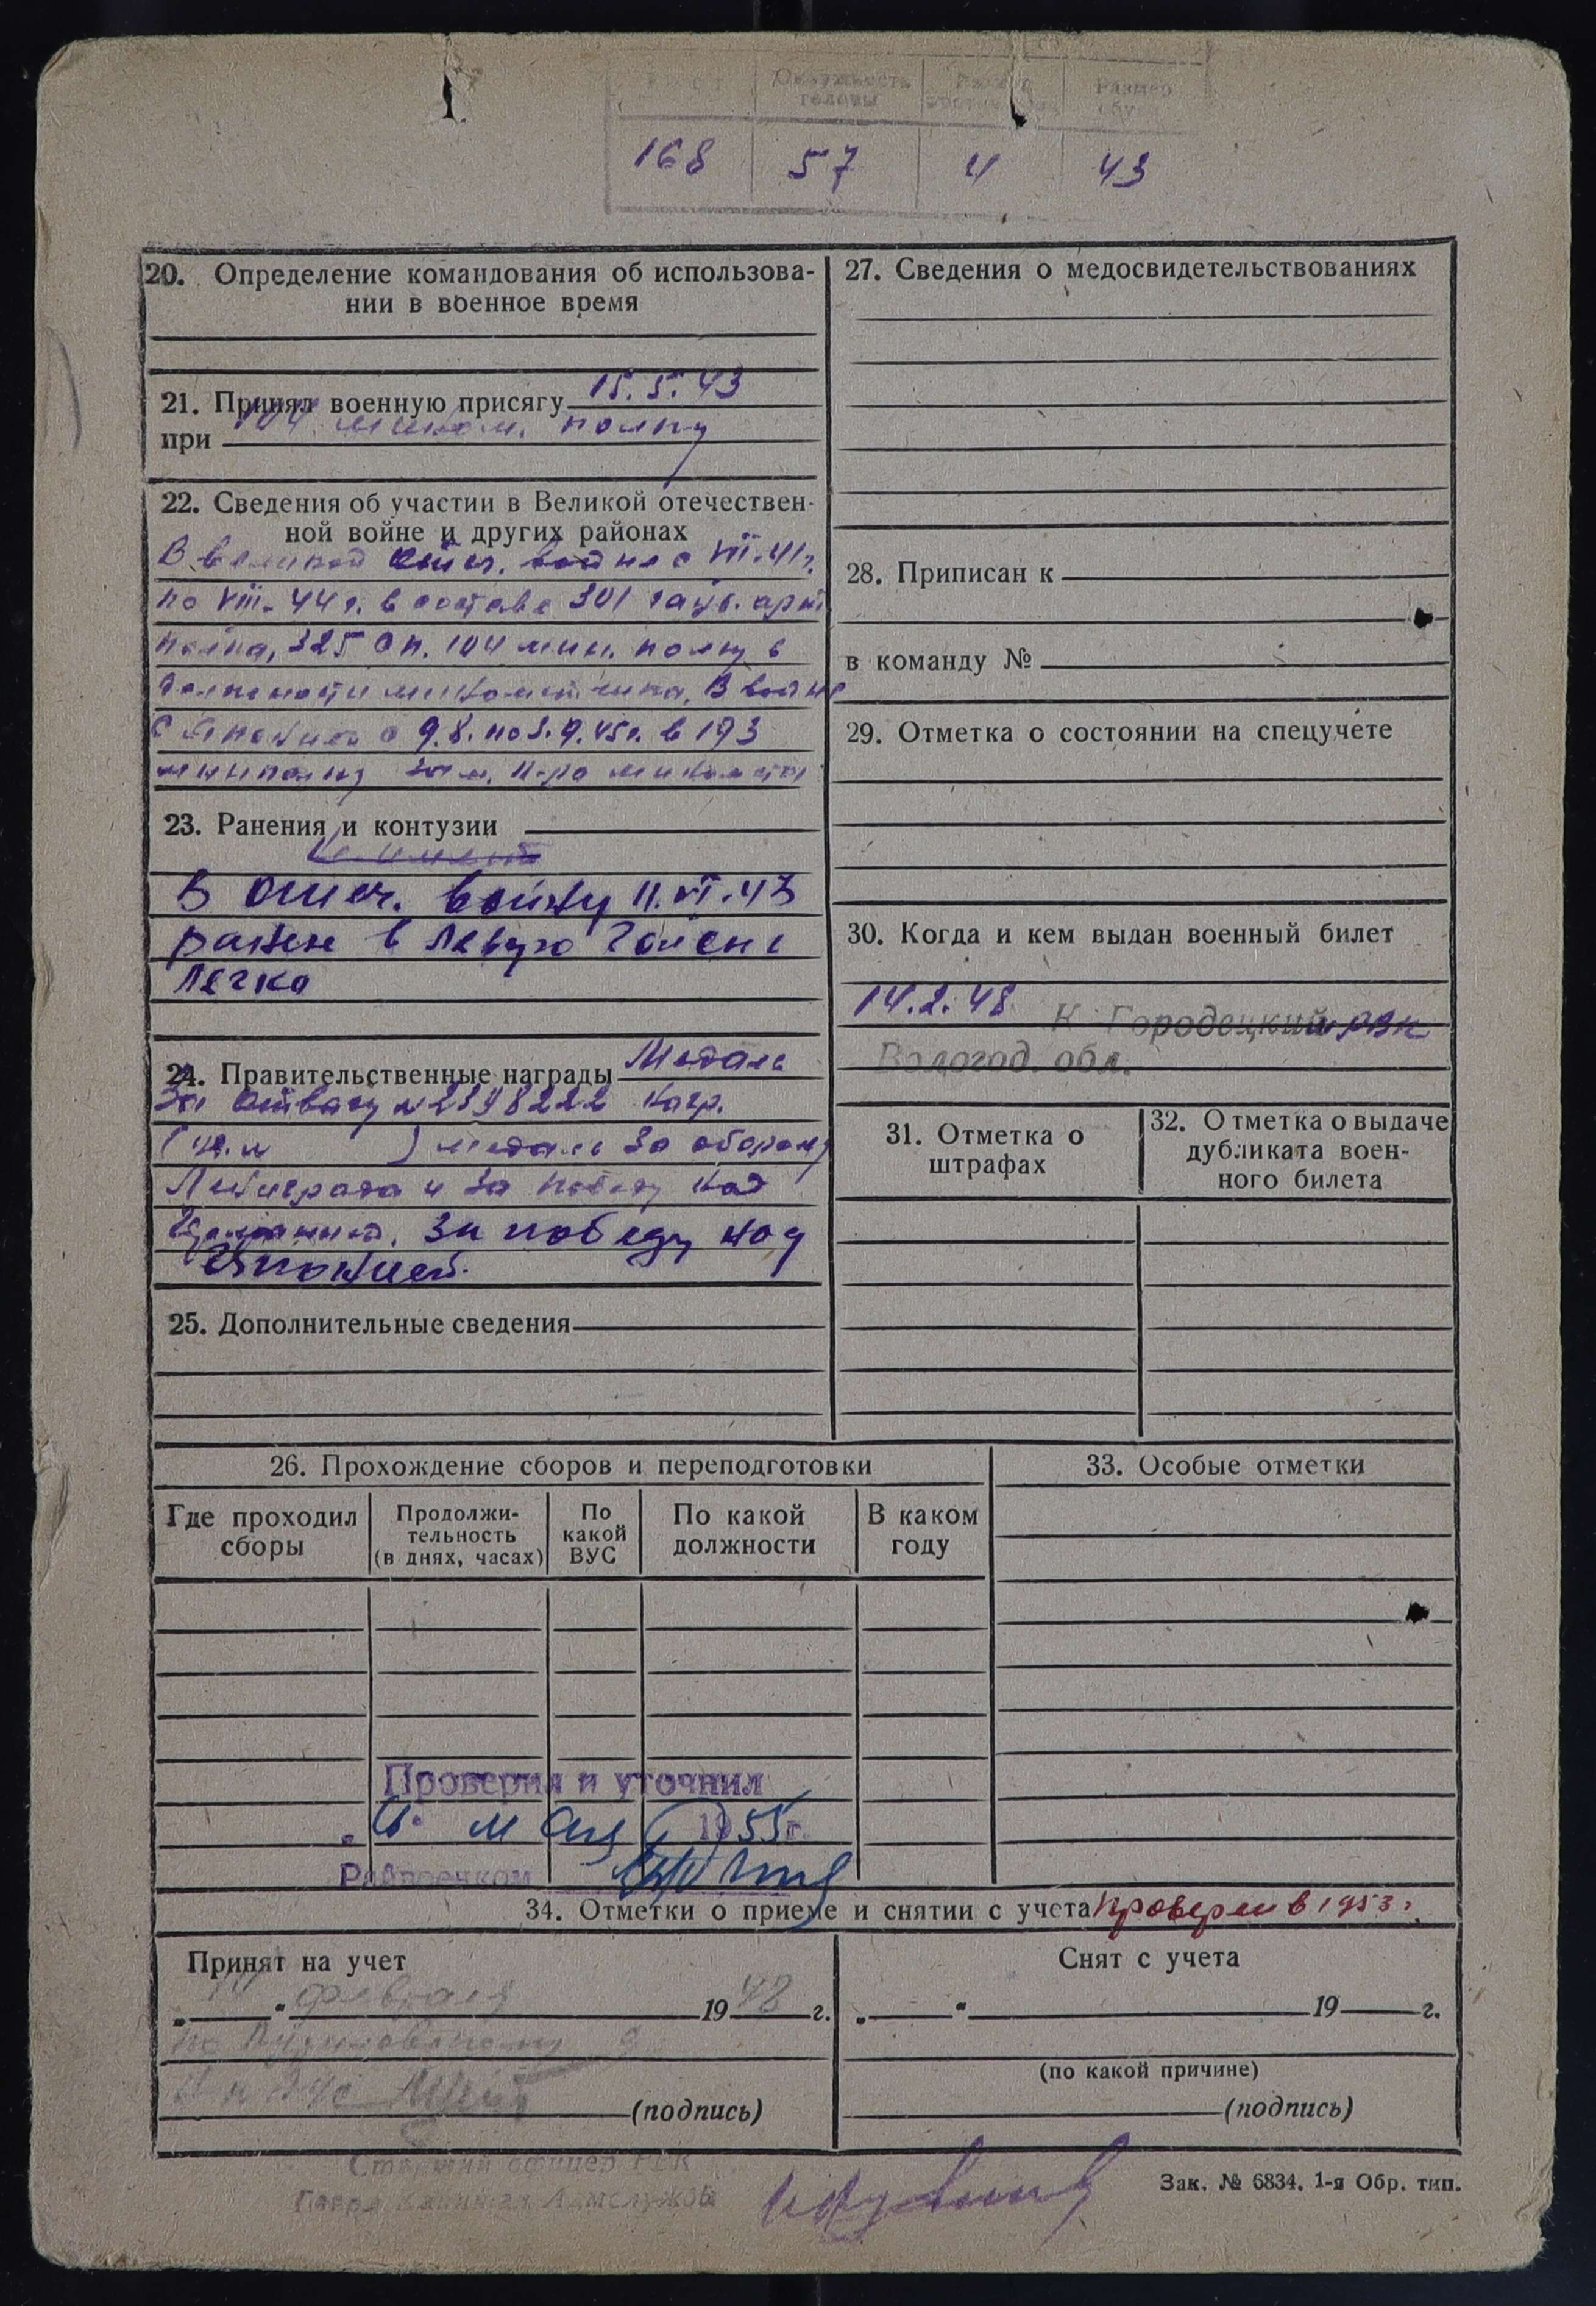 Рост Окружность головы Размер Размер обуви
168 57 4 43
20. Определение командования об использова-
нии в военное время
21. Принял военную присягу 15.5.43
при 104 мином. полку
22. Сведения об участии в Великой отечествен-
ной войне и других районах
В великой отеч. войне с VII-41г.
по VIII-44 г. в составе 301 гауб. арт
полка, 325 сп. 104 мин. полку в
должности минометчика, В войне
с Японией с 9.8. по 3.9.45г. в 193
минполку зам. к-ра миномета
23. Ранения и контузии
Не имеет
В отеч. войну 11.VI.43
ранен в левую голень
легко
24. Правительственные награды Медаль
За отвагу № 2398222 нагр.
( ) медаль За оборону
Ленинграда и За победу над
Германией. За победу над
Японией.
25. Дополнительные сведения
26. Прохождение сборов и переподготовки
Где проходил сборы
Продолжи-
тельность
(в днях, часах)
По
какой
ВУС
По какой
должности
В каком
году
Проверил и уточнил
мая 1955 г.
Райвоенком
27. Сведения о медосвидетельствованиях
28. Приписан к
в команду №
29. Отметка о состоянии на спецучете
30. Когда и кем выдан военный билет
14.2.48 К Городецким РВК
Вологод. обл.
31. Отметка о
штрафах
32. Отметка о выдаче
дубликата воен-
ного билета
33. Особые отметки
34. Отметки о приеме и снятии с учета Проверен в 1953 г.
Принят на учет
„14“ февраля 1948 г.
(подпись)
Снят с учета
„ “ 19 г.
(по какой причине)
(подпись)
Старший офицер РВК
Гв. Капитан Адмслужбы
Зак. № 6834. 1-я Обр. тип.